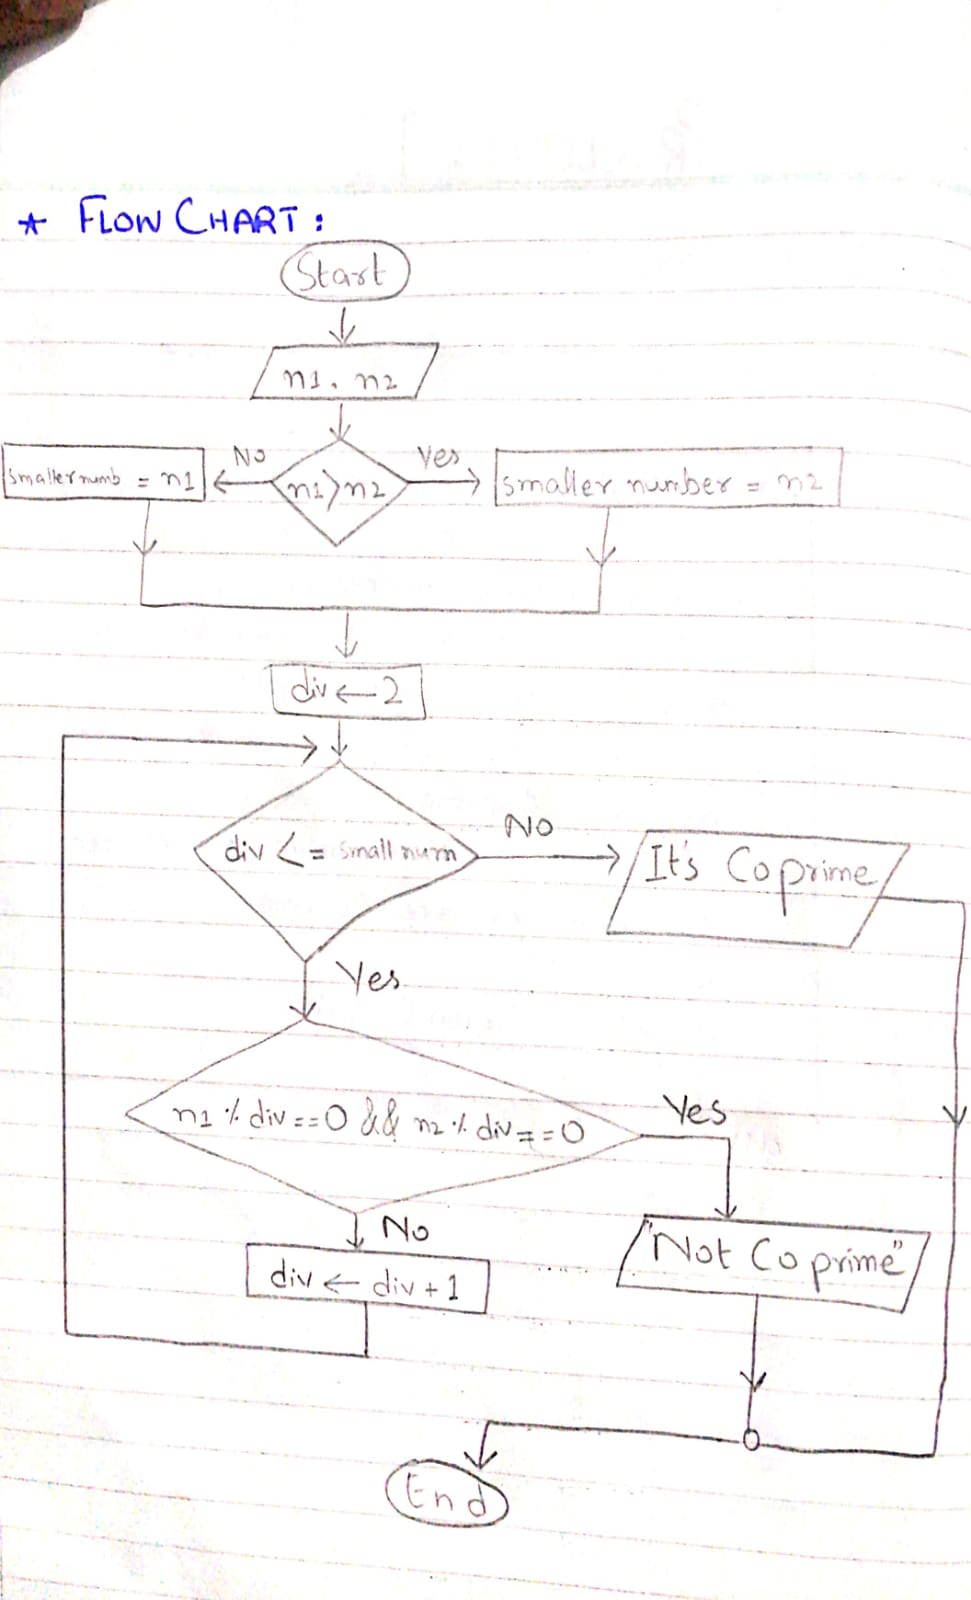 ★ FLOW CHART :
Start
n1, n2
No
Yes
smaller numb = n1
n1>n2
smaller number = n2
div ← 2
div <= small num
No
It's Coprime
Yes
n1 % div==0 && n2 % div==0
Yes
No
"Not Coprime"
div ← div+1
End